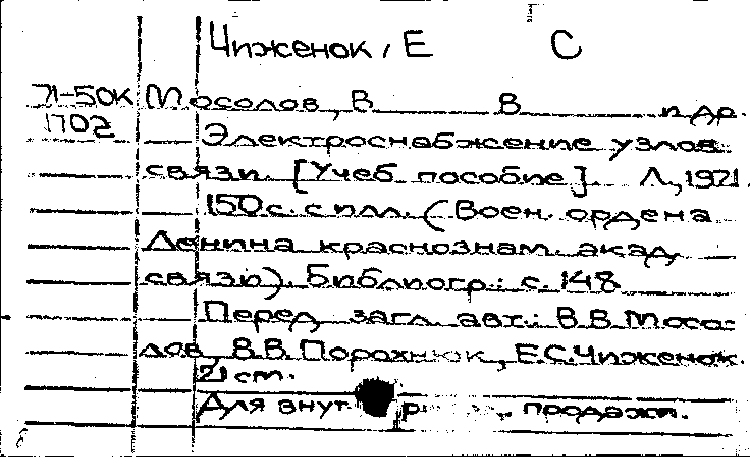 Чиженок, Е С
Л-50к Мосолов, В В и др.
1702 Электроснабжение узлов
связи. [Учеб. пособие]. Л., 1971.
150 с. с илл. (Воен. ордена
Ленина краснознам. акад
связи). Библиогр.: с. 148
Перед загл. авт.: В.В. Мосо-
лов, В.В. Порохнюк, Е.С. Чиженок.
21 см.
Для внут продажи.